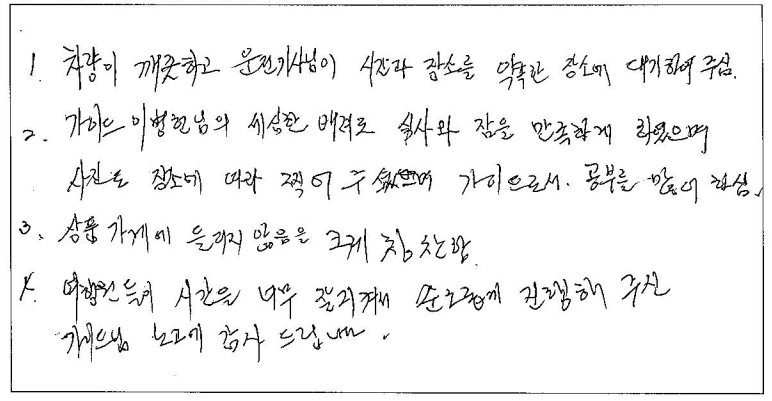 1. 차량이 깨끗하고 운전기사님이 시간과 장소를 약속한 장소에 대기하여 주심.
2. 가이드 이병헌님의 세심한 배려로 식사와 잠을 만족하게 하였으며
사진도 장소에 따라 찍어 주셨으며 가이드로서. 공부를 많이 하심.
3. 상품가게에 들리지 않음을 크게 칭찬함.
4. 여행원들의 시간을 너무 잘 지켜 순조롭게 진행해 주신
가이드님 노고에 감사드립니다.